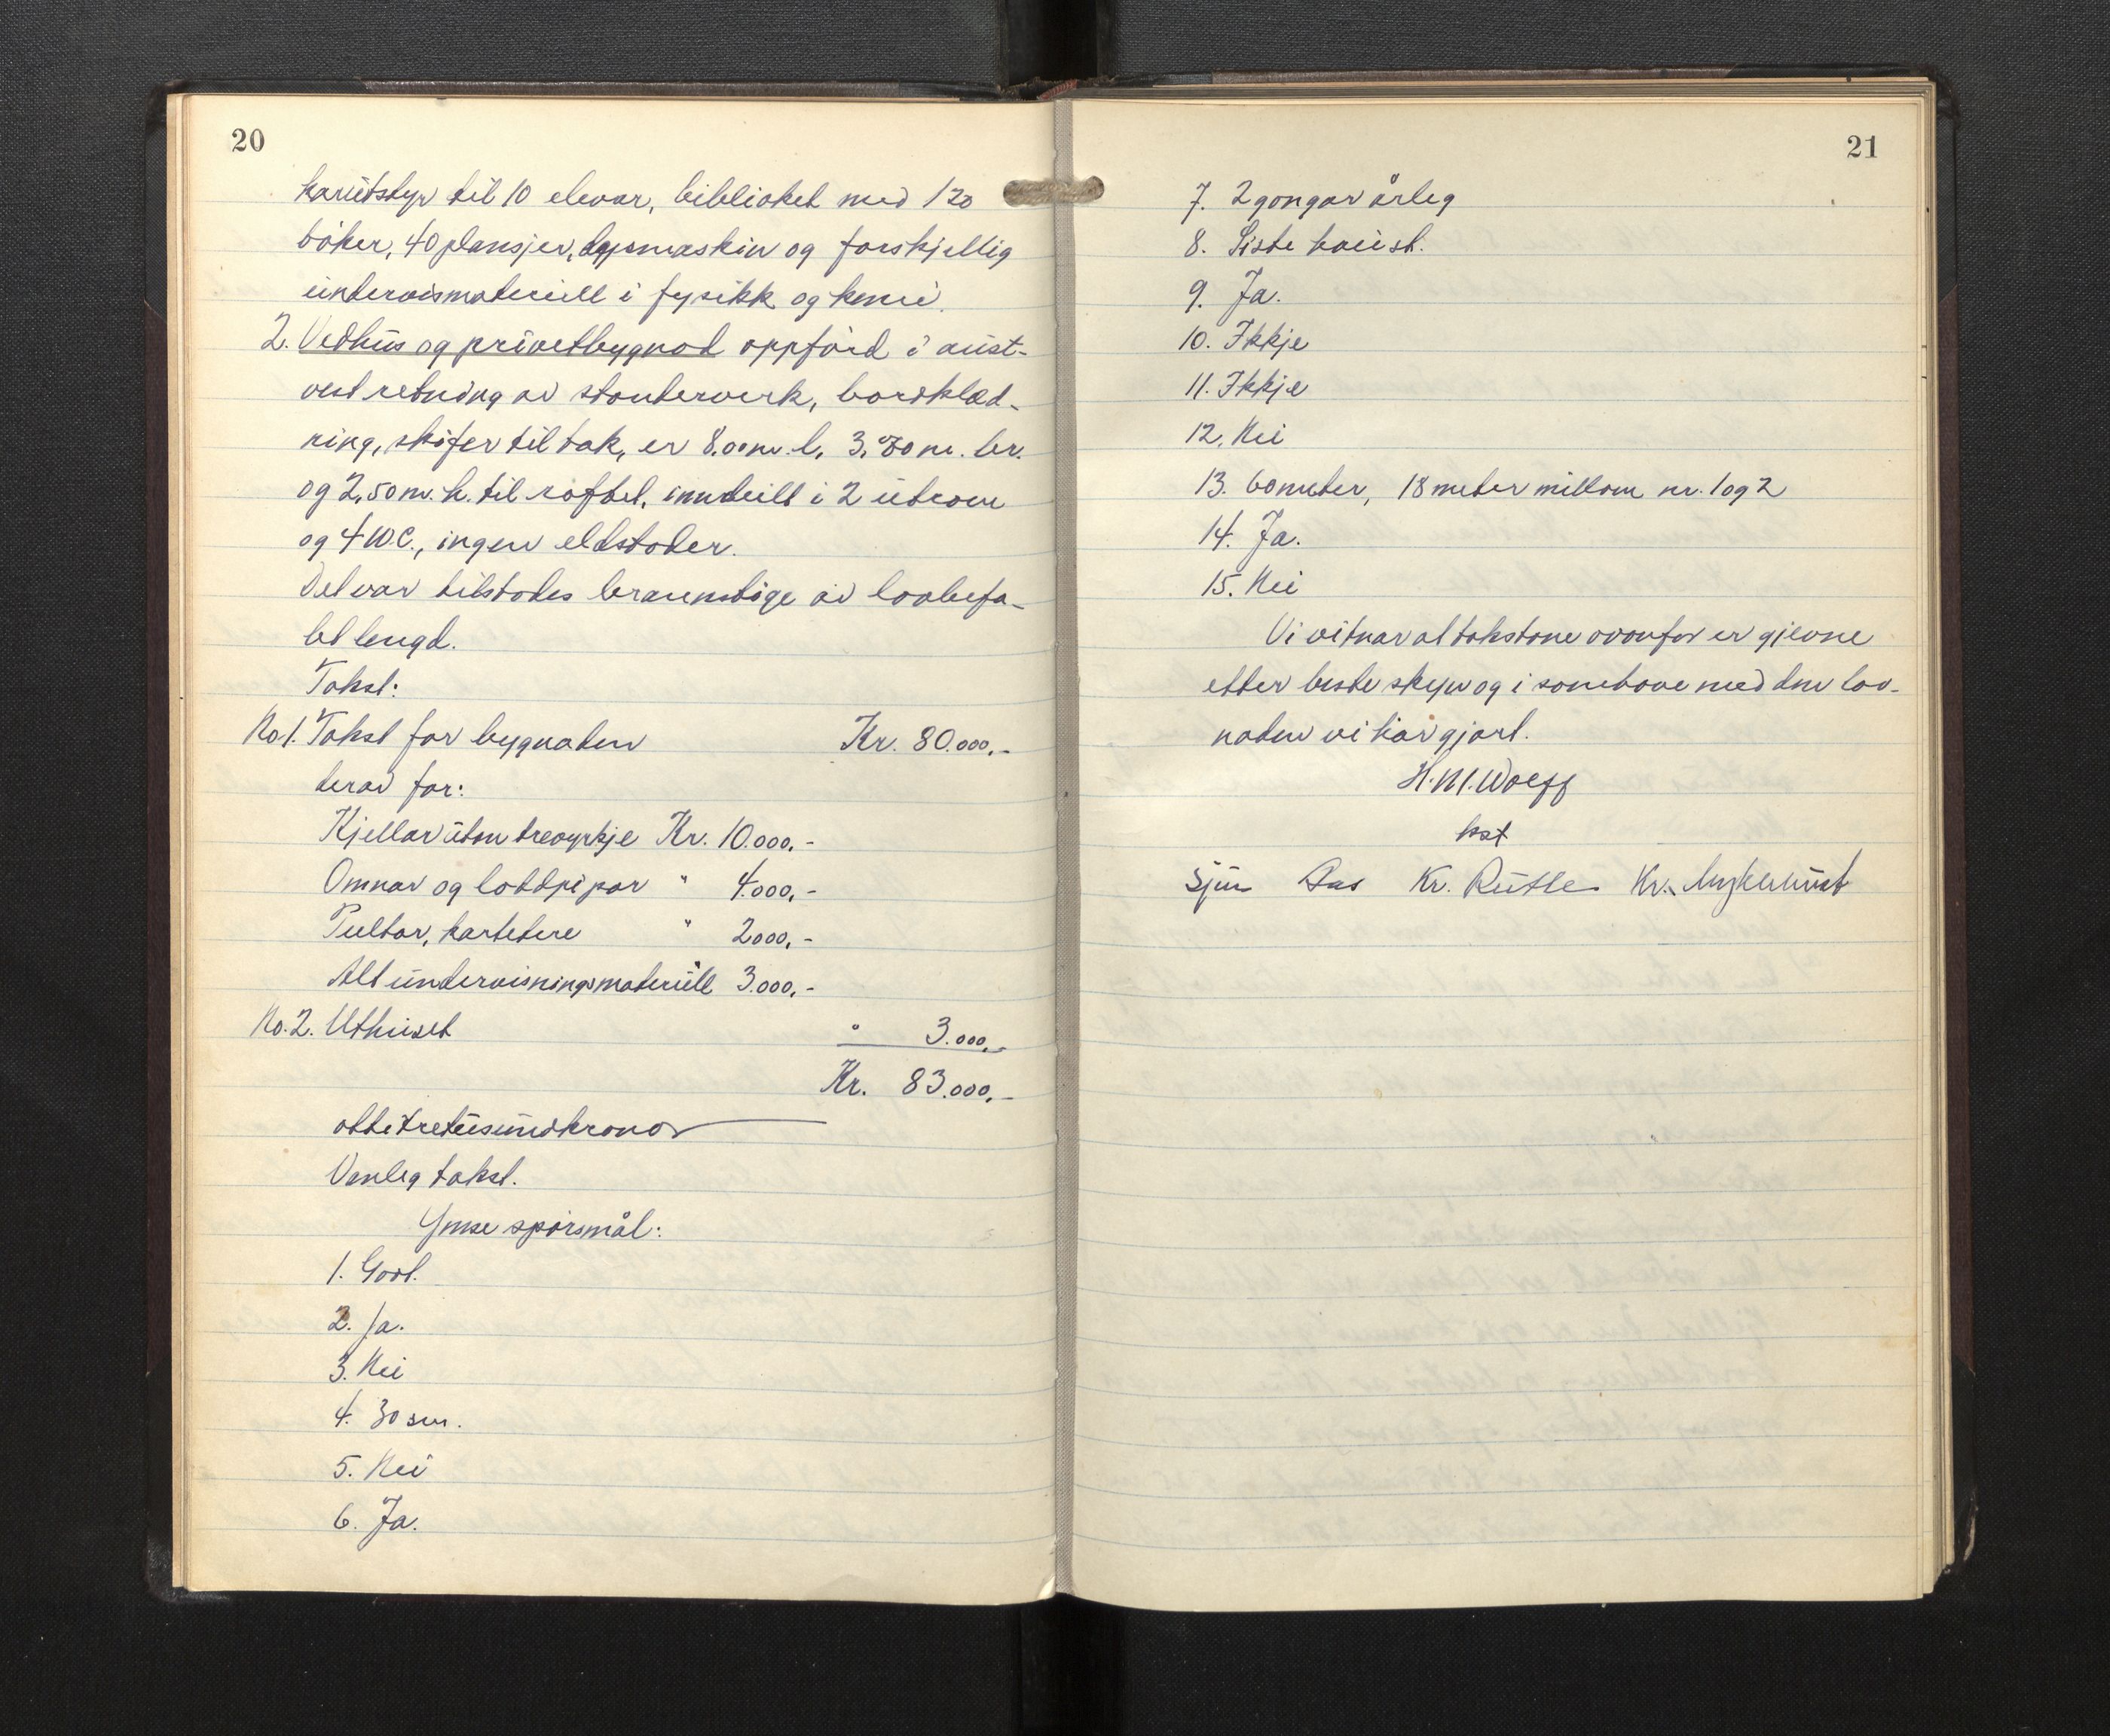 20
karutstyr til 10 elevar, bibliotek med 120
böker, 40 plansjer, lysmaskin og forskjellig
undervismateriell i fysikk og kemi.
2. Vedhus og privetbygnad oppförd i aust-
vest retning av stenderverk, bordklæd-
ning, skifer til tak, er 8.00 m. l. 3,80 m. br.
og 2,50 m. h. til röftet, inndeilt i 2 utrom
og 4 W.C., ingen eldstader.
Det var tilstades brannstige av lovbefa-
let lengd.
Takst:
No 1. Takst for bygnaden Kr. 80.000,-
derav for:
Kjellar utan treverkje Kr. 10.000,-
Omnar og loddpipar " 4.000,-
Pultar, kartetere " 2000,-
Alt undervisningsmateriell 3.000,-
No. 2. Uthuset " 3.000,-
Kr. 83.000,-
åttitretusundkronor
Vanleg takst.
Ymse spörsmål:
1. Godt.
2. Ja.
3. Nei
4. 30 sm.
5. Nei
6. Ja.
21
7. 2 gongar årleg
8. Siste haust.
9. Ja.
10. Ikkje
11. Ikkje
12. Nei
13. 60 meter, 18 meter millom nr. 1 og 2
14. Ja.
15. Nei
Vi vitnar at takstane ovanfor er gjevne
etter beste skyn og i samhøve med den lov-
naden vi har gjort.
H. M. Wolff
kst
Sjur Aas Kr. Rutle Kr.